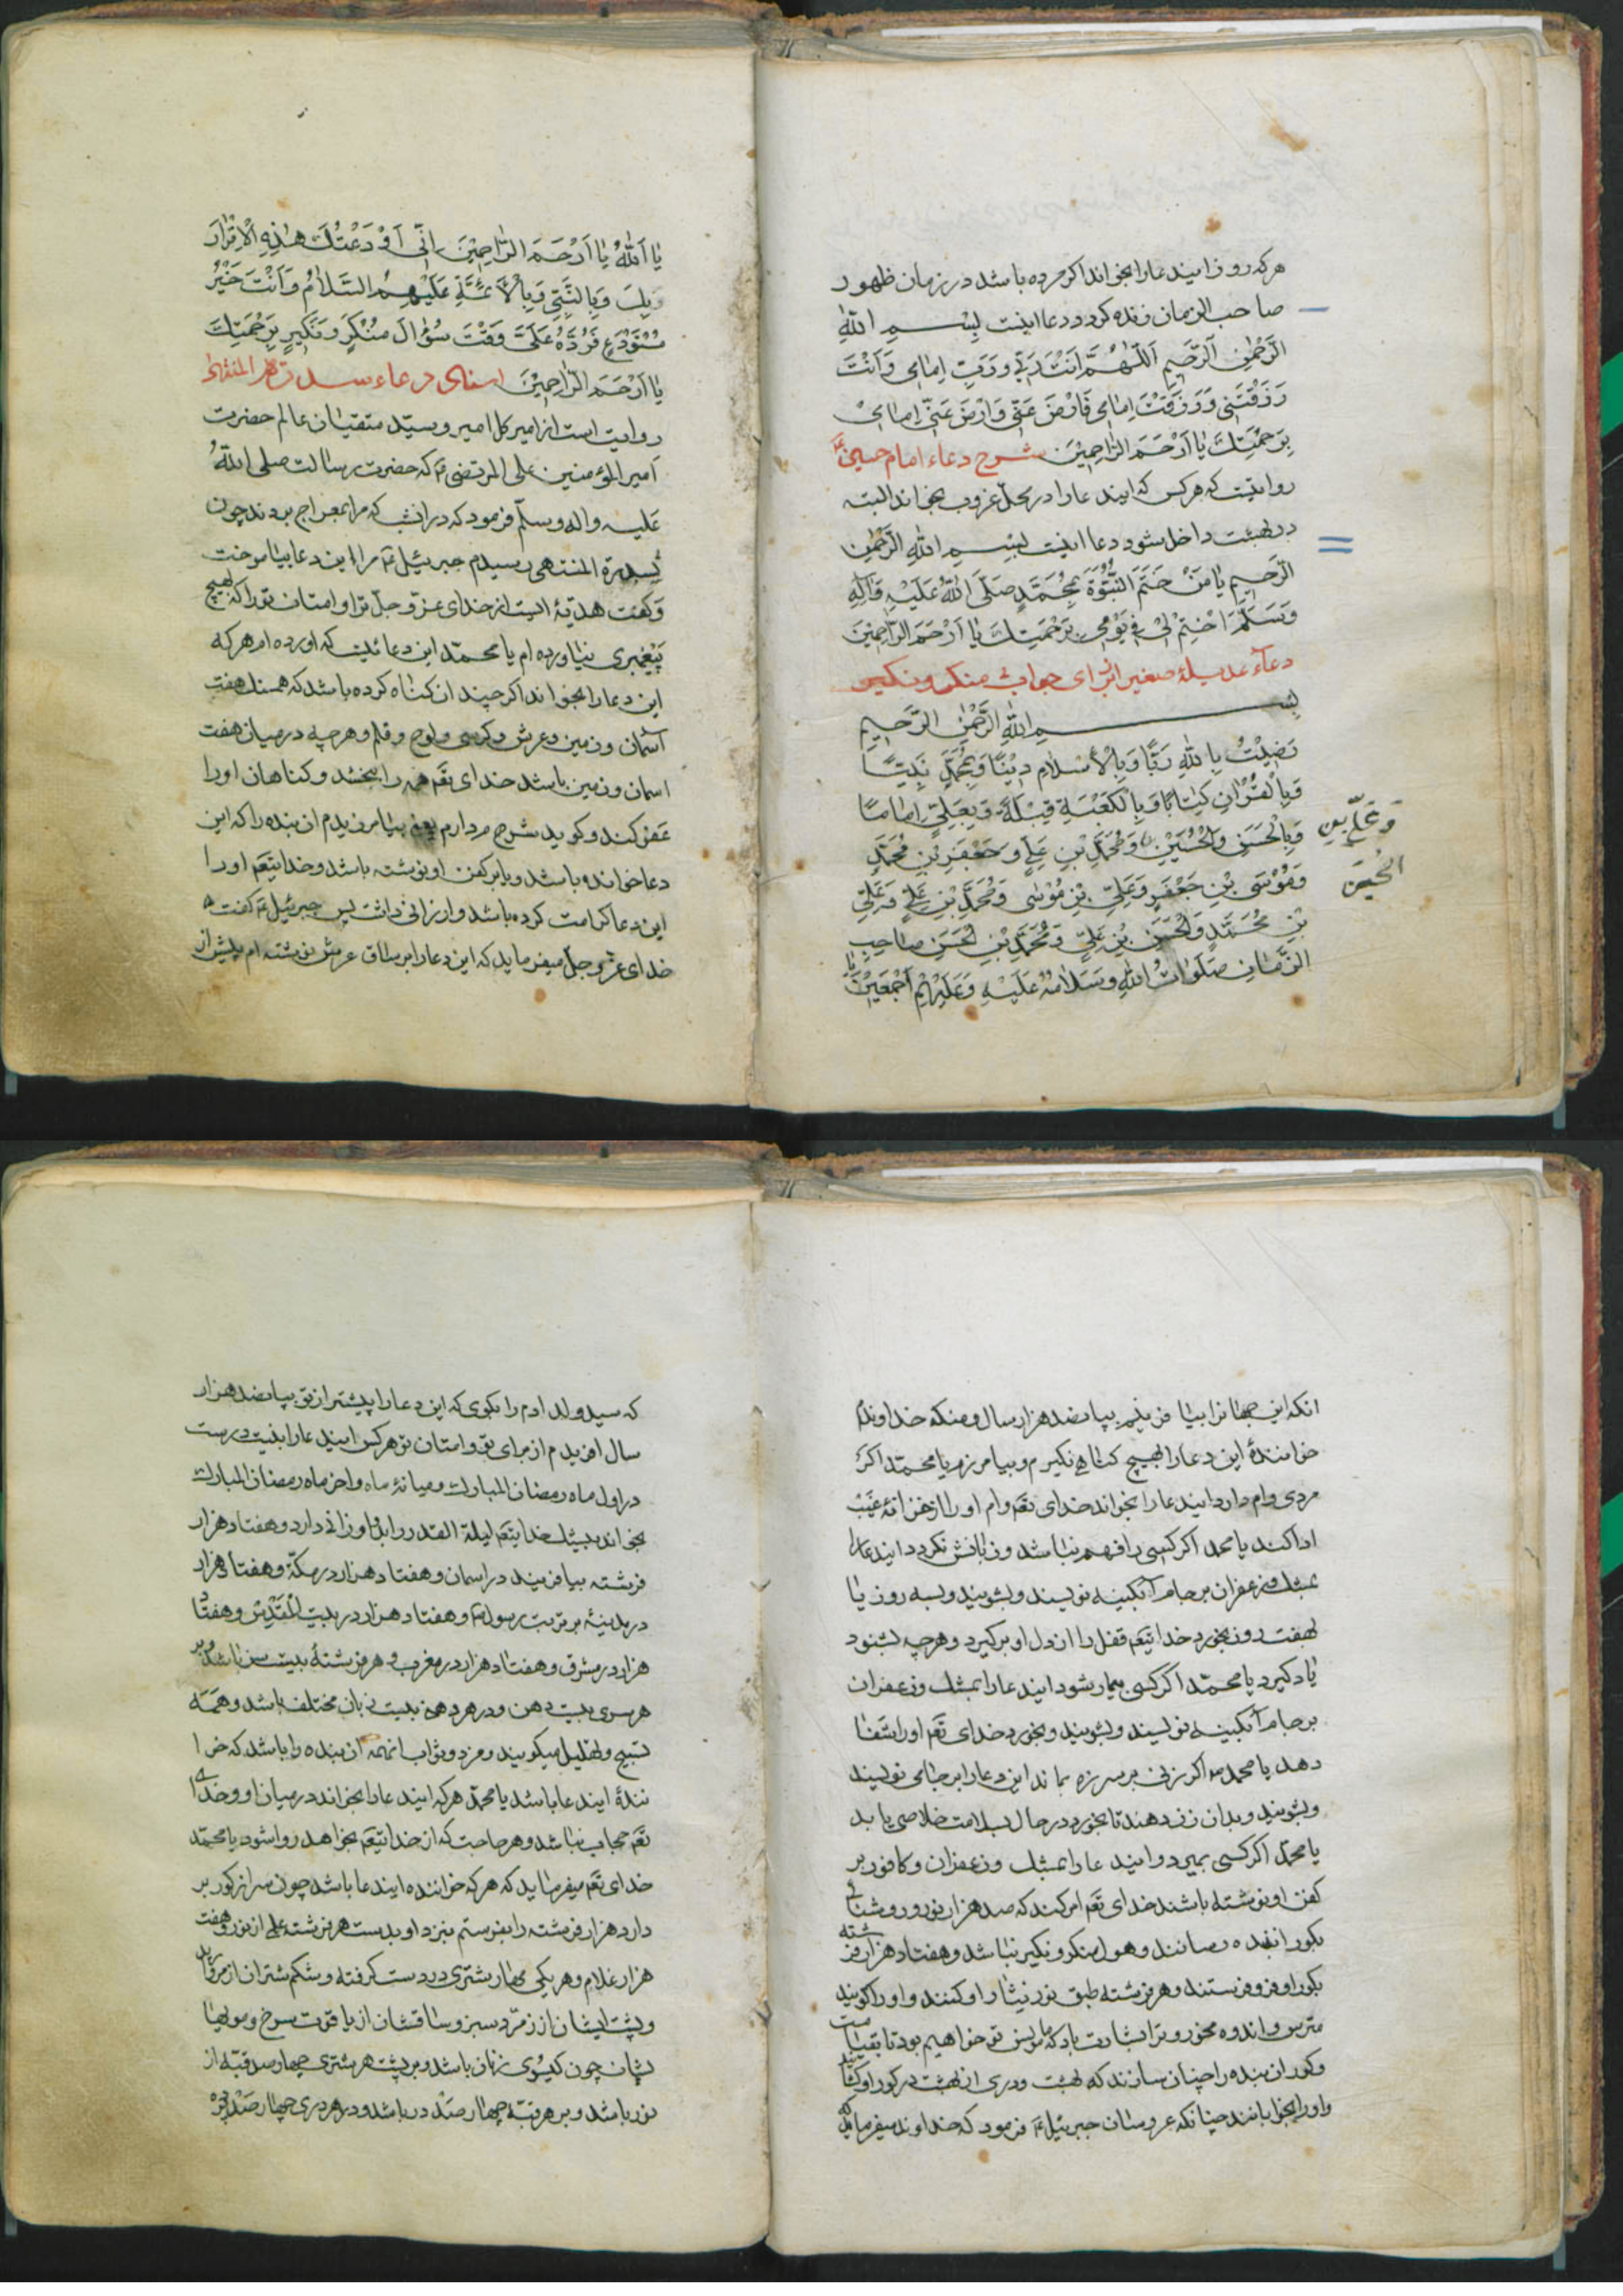 هرکه روزی ایندعا را بخواند اکر مرده باشد در زمان ظهور
صاحب الزمان زنده کردد و دعا اینست بِسْمِ اللّٰهِ
الرَّحْمٰنِ الرَّحِیمِ اَللّٰهُمَّ اَنْتَ رَبّی وَ رَبِّ اِمٰامی وَ اَنْتَ
رَزَقْتَنی وَ رَزَقْتَ اِمٰامی فَارْضَ عَنّی وَارْضَ عَنّی اِمٰامی
بِرَحْمَتِكَ یٰا اَرْحَمَ الرّٰاحِمینَ شرح دعاء امام حسین ع
روایتست که هر کس که ایندعا را در محل غروب بخواند البته
در بهشت داخل شود و دعا اینست بِسْمِ اللّٰهِ الرَّحْمٰنِ
الرَّحیمِ یٰا مَنْ خَتَمَ النُّبُوَّةَ بِمُحَمَّدٍ صَلَّی اللّٰهُ عَلَیْهِ وَاٰلِهِ
وَسَلَّمَ اخْتِمْ لی فی یَوْمی بِرَحْمَتِكَ یٰا اَرْحَمَ الرّٰاحِمینَ
دعاء عدیلهٔ صغیر از برای جواب منکر و نکیر
بِسْمِ اللّٰهِ الرَّحْمٰنِ الرَّحیمِ
رَضیتُ بِاللّٰهِ رَبًّا وَبِالْاِسْلٰامِ دینًا وَبِمُحَمَّدٍ نَبِیًّا
وَبِالْقُرْاٰنِ کِتٰابًا وَبِالْکَعْبَةِ قِبْلَةً وَبِعَلِیٍّ اِمٰامًا
وَبِالْحَسَنِ وَالْحُسَیْنِ وَمُحَمَّدِ بْنِ عَلِیٍّ وَجَعْفَرِ بْنِ مُحَمَّدٍ
وَعَلِیِّ بْنِ
الْحُسَیْنِ
وَمُوسَی بْنِ جَعْفَرٍ وَعَلِیِّ بْنِ مُوسٰی وَمُحَمَّدِ بْنِ عَلِیٍّ وَعَلِیِّ
بْنِ مُحَمَّدٍ وَالْحَسَنِ بْنِ عَلِیٍّ وَمُحَمَّدِ بْنِ الْحَسَنِ صٰاحِبِ
الزَّمٰانِ صَلَوٰاتُ اللّٰهِ وَسَلٰامُهُ عَلَیْهِ وَعَلَیْهِمْ اَجْمَعینَ یا
یٰا اَللّٰهُ یٰا اَرْحَمَ الرّٰاحِمینَ اِنّی اَوْدَعْتُكَ هٰذِهِ الْاِقْرٰارَ
وَبِكَ وَبِالنَّبِیِّ وَبِالْاَئِمَّةِ عَلَیْهِمُ السَّلٰامُ وَاَنْتَ خَیْرُ
مُسْتَوْدَعٍ فَرُدَّهُ عَلَیَّ وَقْتَ سُؤٰالِ مُنْکَرٍ وَنَکیرٍ بِرَحْمَتِكَ
یٰا اَرْحَمَ الرّٰاحِمینَ اسناد دعاء سدرة المنتهی
روایت است از امیر کل امیر و سیّد متقیان عالم حضرت
امیر المؤمنین علی المرتضی ع که حضرت رسالت صلی اللّٰه
علیه واله وسلّم فرمود که در انشب که مرا بمعراج بردند چون
بسدرة المنتهی رسیدم جبرئیل ع مرا این دعا بیاموخت
وکفت هدیّهٔ است از خدای عزّ و جلّ ترا و امتان تو را که بهیچ
پیغمبری نیاورده ام یا محمّد این دعائیست که اورده ام هر که
این دعا را بخواند اکر چندان کناه کرده باشد که همسنك هفت
آسمان و زمین و عرش و کرسی و لوح و قلم و هرچه درمیان هفت
اسمان و زمین باشد خدای تعم همه را ببخشد و کناهان او را
عفو کند و کوید شرم میدارم یعنی بیامرزیدم ان بنده را که این
دعا خوانده باشد و یا بر کفن او نوشته باشد و خدایتعم او را
این دعا کرامت کرده باشد و ارزانی داشت پس جبرئیل ع کفت
خدای عزّ و جلّ میفرماید که این دعا را بر ساق عرش نوشته ام پیش از
انکه این جهانرا بیافرینم بپانصد هزار سال و منکه خداوندم
خوانندهٔ این دعا را بهیچ کناهی نکیرم و بیامرزم یا محمّد اکر
مردی وام دارد ایندعا را بخواند خدای تعم وام او را از خزانهٔ غیب
ادا کند یا محمد اکر کسی را فهم نباشد و زبانش نکردد ایندعا را
بمشك و زعفران بر جام آبکینه نویسند و بشویند و بسه روز یا
هفت روز بخورد خدایتعم قفل را از دل او برکیرد و هرچه بشنود
یاد کیرد یا محمّد اکر کسی بیمار شود ایندعا را بمشك و زعفران
بر جام آبکینه نویسند و بشویند و بخورد خدای تعم او را شفا
دهد یا محمد اکر زنی بر سر زه بماند این دعا را بر جامی نویسند
و بشویند و بدان زن دهند تا بخورد در حال بسلامت خلاصی یابد
یا محمّد اکر کسی بمیرد و ایندعا را بمشك و زعفران و کافور بر
کفن او نوشته باشند خدای تعم امر کند که صد هزار نور و روشنائی
بکور انبنده رسانند و هول منکر و نکیر نباشد و هفتاد هزار فرشته
بکور او فرو فرستند و هر فرشته طبق نور نیثار او کنند و او را کویند
مترس و اندوه مخور و ترا بشارت باد که ما مونس تو خواهیم بود تا بقیامت
و کور ان بنده را چنان سازند که بهشت و دری از بهشت در کور او کشایند
و او را بخوابانند چنانکه عروسان جبرئیل ع فرمود که خداوند میفرماید که
که سید ولد ادم را بکوی که این دعا را پیشتر از تو بپانصد هزار
سال افریدم از برای تو و امتان تو هر کس ایندعا را بنیت درست
در اول ماه رمضان المبارك و میانهٔ ماه و اخر ماه رمضان المبارك
بخواند بیشك خدایتعم لیلة القدر را باو ارزانی دارد و هفتاد هزار
فرشته بیافریند در اسمان و هفتاد هزار در مکّه و هفتاد هزار
در مدینه بر تربت رسول ص و هفتاد هزار در بیت المقدّس و هفتاد
هزار در مشرق و هفتاد هزار در مغرب و هر فرشتهٔ بیست سر باشد و بر
هر سری بیست دهن و در هر دهن بیست زبان مختلف باشد و همه
تسبیح و تهلیل میکویند و مزد و ثواب انهمه ان بنده را باشد که خوا
نندهٔ ایندعا باشد یا محمّد هر که ایندعا را بخواند درمیان او و خدای
تعم حجاب نباشد و هر حاجت که از خدایتعم بخواهد روا شود یا محمّد
خدای تعم میفرماید که هر که خواننده ایندعا باشد چون سر از کور بر
دارد هزار فرشته را بفرستم بنزد او بدست هر فرشته علمی از نور و هفت
هزار غلام و هر یکی مهار شتری در دست کرفته و شکم شتران از مروارید
و پشت ایشان از زمرّد سبز و ساقشان از یاقوت سرخ و مویها
یشان چون کیسوی زنان باشد و بر پشت هر شتری چهار صد قبّه از
نور باشد و بر هر قبّه چهار صد در باشد و در هر دری چهار صد پرده